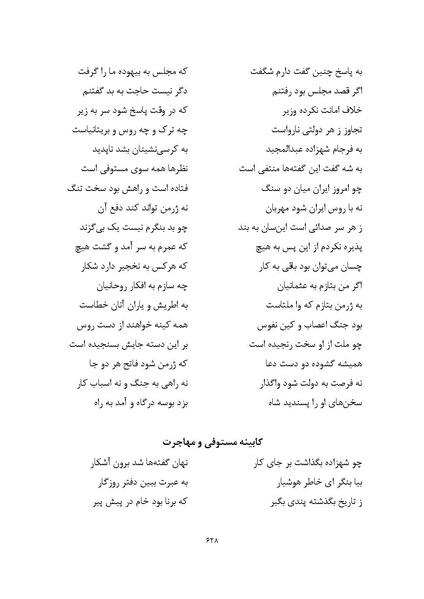 به پاسخ چنین گفت دارم شگفت که مجلس به بیهوده ما را گرفت
اگر قصد مجلس بود رفتنم دگر نیست حاجت به بد گفتنم
خلاف امانت نکرده وزیر که در وقت پاسخ شود سر به زیر
تجاوز ز هر دولتی نارواست چه ترک و چه روس و بریتانیاست
به فرجام شهزاده عبدالمجید به کرسی‌نشینان بشد ناپدید
به شه گفت این گفته‌ها منتفی است نظرها همه سوی مستوفی است
چو امروز ایران میان دو سنگ فتاده است و راهش بود سخت تنگ
نه با روس ایران شود مهربان نه ژرمن تواند کند دفع آن
ز هر سر صدائی است این‌سان به بند چو بد بنگرم نیست یک بی‌گزند
پذیره نکردم از این پس به هیچ که عمرم به سر آمد و گشت هیچ
چسان می‌توان بود باقی به کار که هرکس به نخجیر دارد شکار
اگر من بتازم به عثمانیان چه سازم به افکار روحانیان
به ژرمن بتازم که وا ملتاست به اطریش و یاران آنان خطاست
بود جنگ اعصاب و کین نفوس همه کینه خواهند از دست روس
چو ملت از او سخت رنجیده است بر این دسته جایش بسنجیده است
همیشه گشوده دو دست دعا که ژرمن شود فاتح هر دو جا
نه فرصت به دولت شود واگذار نه راهی به جنگ و نه اسباب کار
سخن‌های او را پسندید شاه بزد بوسه درگاه و آمد به راه
کابینه مستوفی و مهاجرت
چو شهزاده بگذاشت بر جای کار نهان گفته‌ها شد برون آشکار
بیا بنگر ای خاطر هوشیار به عبرت ببین دفتر روزگار
ز تاریخ بگذشته پندی بگیر که برنا بود خام در پیش پیر
۶۲۸